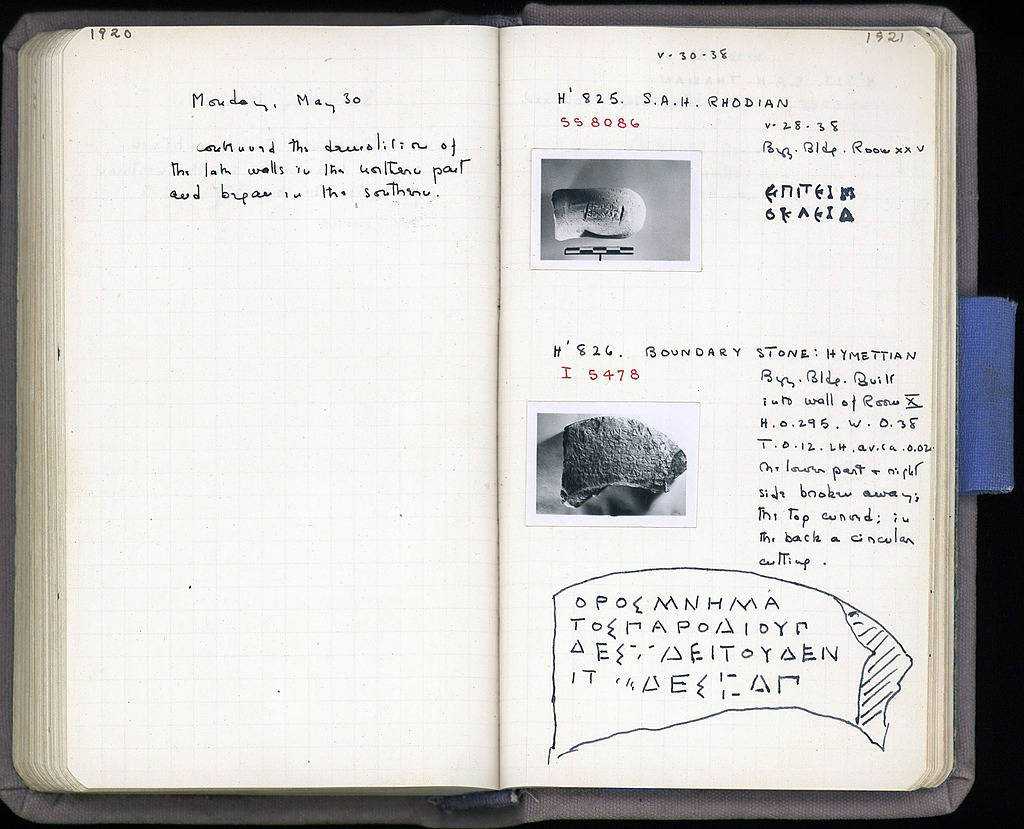 1920
Monday, May 30
continued the demolition of
the late walls in the northern part
and began in the southern.
1921
V-30-38
H' 825. S.A.H. RHODIAN
SS 8086
V-28-38
Byz. Bldg. Room XXV
ΕΠΙΤΕΙΜ
ΟΚΛΕΙΔ
H' 826. BOUNDARY STONE: HYMETTIAN
I 5478
Byz. Bldg. Built
into wall of Room X
H.0.295. W.0.38
T.0.12. LH.av.ca.0.02.
The lower part + right
side broken away;
the top curved; in
the back a circular
cutting.
ΟΡΟΣΜΝΗΜΑ
ΤΟΣΠΑΡΟΔΙΟΥΠ
ΔΕΣ ΔΕΙΤΟΥΔΕΝ
ΙΤ ΔΕΣ ΔΠ